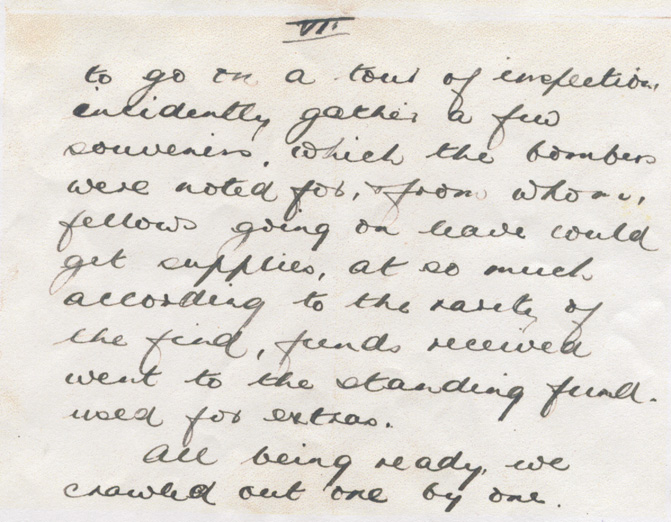 VII
to go on a tour of inspection,
incidently gather a few
souvenirs, which the bombers
were noted for, & from whom,
fellows going on leave could
get supplies, at so much
according to the rarity of
the find, funds received
went to the standing fund.
used for extras.
All being ready, we
crawled out one by one.